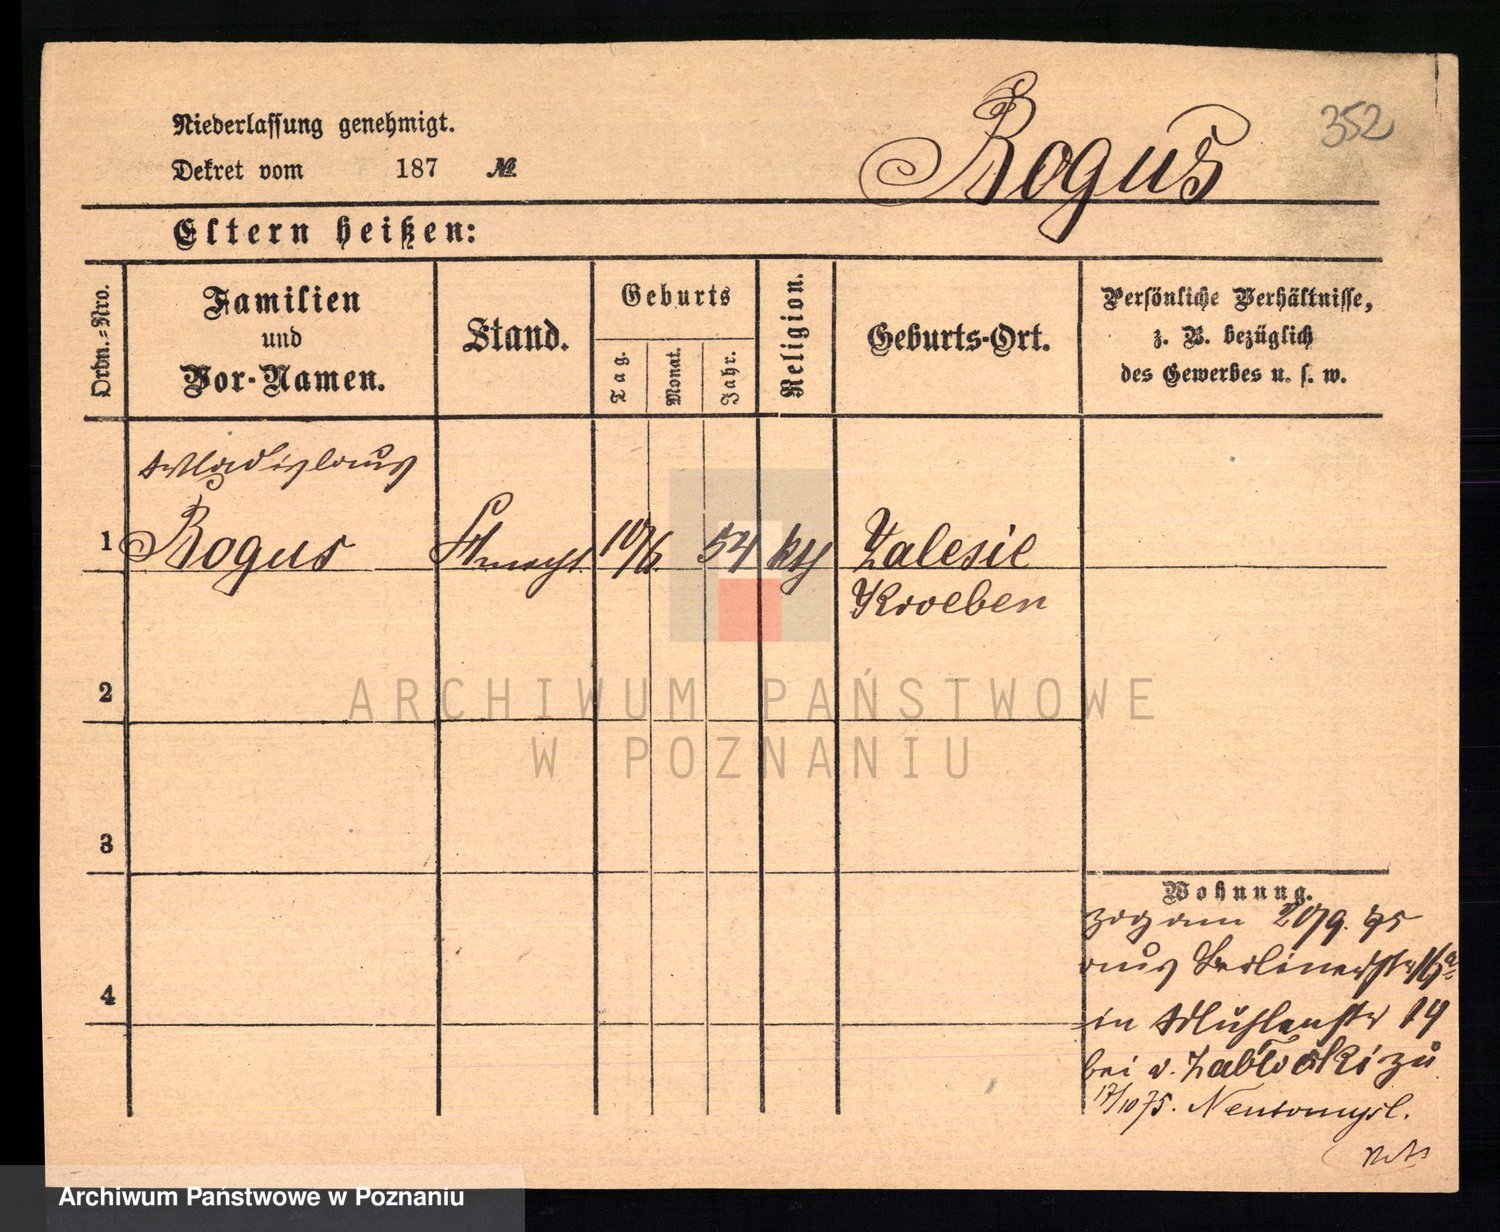 352
Rogus
Niederlassung genehmigt.
Dekret vom 187 №
Eltern heißen:
Ordn.-Nro.
Familien
und
Vor-Namen.
Stand.
Geburts
Tag.
Monat.
Jahr.
Religion.
Geburts-Ort.
Persönliche Verhältnisse,
z. B. bezüglich
des Gewerbes u. s. w.
Wladislaus
1 Rogus Knecht 10/6. 54 kth Zalesie
Kroeben
2
3
4
Wohnung.
zog am 20/9. 75
aus Berlinerstr 16a
in Mühlenstr 14
bei v. Zabłocki zu
17/10 75. Neutomysl.
ARCHIWUM PAŃSTWOWE
W POZNANIU
Archiwum Państwowe w Poznaniu